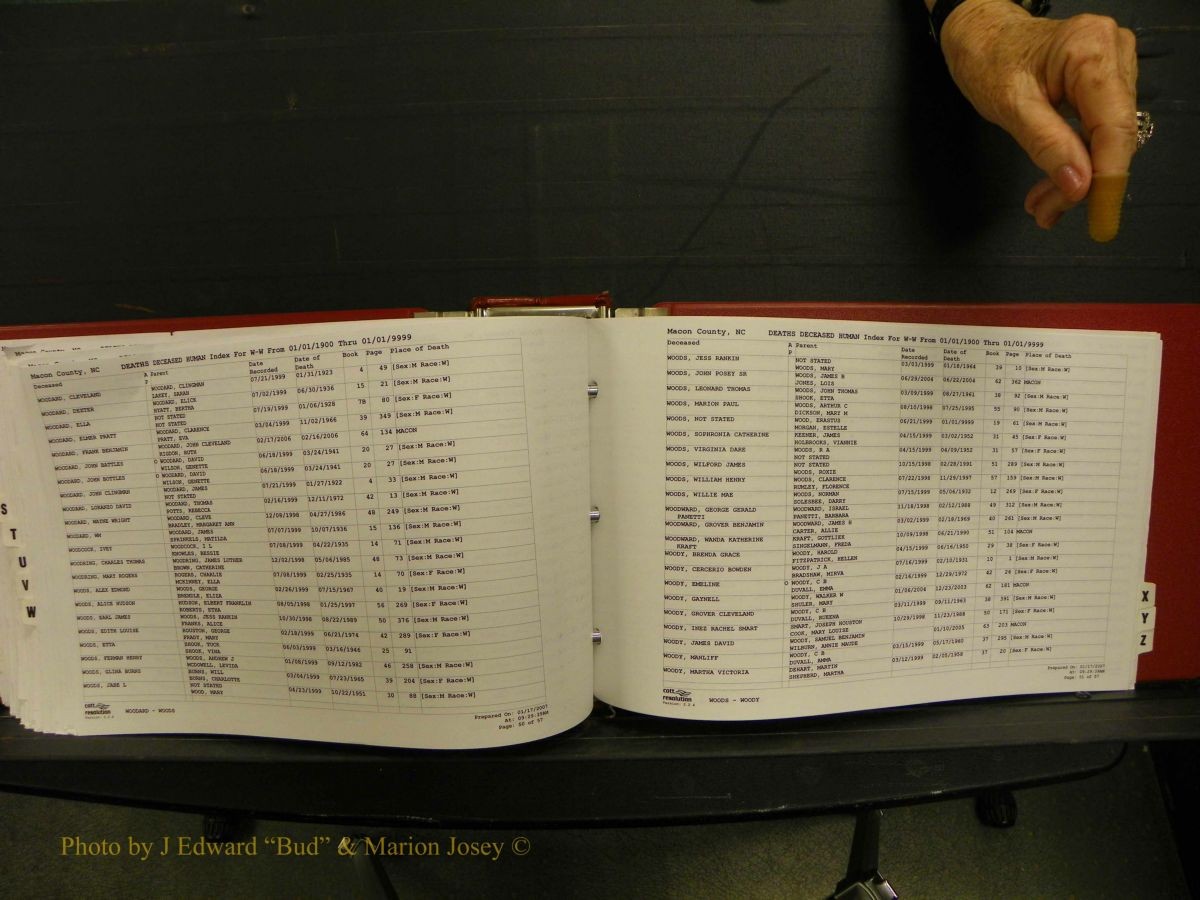 Macon County, NC DEATHS DECEASED HUMAN Index For W-W From 01/01/1900 Thru 01/01/9999
Deceased A Parent Date Recorded Date of Death Book Page Place of Death
P
WOODARD, CLEVELAND WOODARD, CLINGMAN 07/21/1999 01/31/1923 4 49 [Sex:M Race:W]
LAKEY, SARAH
WOODARD, DEXTER WOODARD, ELICK 07/02/1999 06/30/1936 15 21 [Sex:M Race:W]
HYATT, BERTHA
WOODARD, ELLA NOT STATED 07/19/1999 01/06/1928 7B 80 [Sex:F Race:W]
NOT STATED
WOODARD, ELMER PRATT WOODARD, CLARENCE 03/04/1999 11/02/1966 39 349 [Sex:M Race:W]
PRATT, EVA
WOODARD, FRANK BENJAMIN WOODARD, JOHN CLEVELAND 02/17/2006 02/16/2006 64 134 MACON
RIGDON, RUTH
WOODARD, JOHN BATTLES O WOODARD, DAVID 06/18/1999 03/24/1941 20 27 [Sex:M Race:W]
WILSON, GENETTE
WOODARD, JOHN BOTTLES O WOODARD, DAVID 06/18/1999 03/24/1941 20 27 [Sex:M Race:W]
WILSON, GENETTE
WOODARD, JOHN CLINGMAN WOODARD, JAMES 07/21/1999 01/27/1922 4 33 [Sex:M Race:W]
NOT STATED
WOODARD, LORANZO DAVID WOODARD, THOMAS 02/16/1999 12/11/1972 42 13 [Sex:M Race:W]
POTTS, REBECCA
WOODARD, WAYNE WRIGHT WOODARD, CLEVE 12/09/1998 04/27/1986 48 249 [Sex:M Race:W]
BRADLEY, MARGARET ANN
WOODARD, WM WOODARD, JAMES 07/07/1999 10/07/1936 15 136 [Sex:M Race:W]
SPRINKLES, MATILDA
WOODCOCK, IVEY WOODCOCK, I L 07/08/1999 04/22/1935 14 71 [Sex:M Race:W]
KNOWLES, BESSIE
WOODRING, CHARLES THOMAS WOODRING, JAMES LUTHER 12/02/1998 05/06/1985 48 73 [Sex:M Race:W]
BROWN, CATHERINE
WOODRING, MARY ROGERS ROGERS, CHARLIE 07/08/1999 02/25/1935 14 70 [Sex:F Race:W]
MCKINNEY, ELLA
WOODS, ALEX EDMOND WOODS, GEORGE 02/26/1999 07/15/1967 40 19 [Sex:M Race:W]
BRENDLE, ELIZA
WOODS, ALICE HUDSON HUDSON, ELBERT FRANKLIN 08/05/1998 01/25/1997 56 269 [Sex:F Race:W]
ROBERTS, ETHA
WOODS, EARL JAMES WOODS, JESS RANKIN 10/30/1998 08/22/1989 50 376 [Sex:M Race:W]
FRANKS, ALICE
WOODS, EDITH LOUISE HOUSTON, GEORGE 02/18/1999 06/21/1974 42 289 [Sex:F Race:W]
FRADY, MARY
WOODS, ETTA SHOOK, TUCK 06/03/1999 03/16/1946 25 91
SHOOK, VINA
WOODS, FERMAN HENRY WOODS, ANDREW J 01/08/1999 09/12/1982 46 258 [Sex:M Race:W]
MCDOWELL, LEVIDA
WOODS, GLINA BURNS BURNS, WILL 03/04/1999 07/23/1965 39 204 [Sex:F Race:W]
BURNS, CHARLOTTE
WOODS, JANE L NOT STATED 04/23/1999 10/22/1951 30 88 [Sex:M Race:W]
WOOD, MARY
cott resolution
Version: 1.2.4
WOODARD - WOODS
Prepared On: 01/17/2007
At: 09:29:19AM
Page: 50 of 57
Macon County, NC DEATHS DECEASED HUMAN Index For W-W From 01/01/1900 Thru 01/01/9999
Deceased A Parent Date Recorded Date of Death Book Page Place of Death
P
WOODS, JESS RANKIN NOT STATED 03/03/1999 01/18/1964 39 10 [Sex:M Race:W]
WOODS, MARY
WOODS, JOHN POSEY SR WOODS, JAMES B 06/29/2004 06/22/2004 62 362 MACON
JONES, LOIS
WOODS, LEONARD THOMAS WOODS, JOHN THOMAS 03/09/1999 08/27/1961 38 92 [Sex:M Race:W]
SHOOK, ETTA
WOODS, MARION PAUL WOODS, ARTHUR C 08/10/1998 07/25/1995 55 90 [Sex:M Race:W]
DICKSON, MARY M
WOODS, NOT STATED WOOD, ERASTUS 06/21/1999 01/01/9999 19 61 [Sex:M Race:W]
MORGAN, ESTELLE
WOODS, SOPHRONIA CATHERINE KEENER, JAMES 04/15/1999 03/02/1952 31 45 [Sex:F Race:W]
HOLBROOKS, VIANNIE
WOODS, VIRGINIA DARE WOODS, R A 04/15/1999 04/09/1952 31 57 [Sex:F Race:W]
NOT STATED
WOODS, WILFORD JAMES NOT STATED 10/15/1998 02/28/1991 51 289 [Sex:M Race:W]
WOODS, ROXIE
WOODS, WILLIAM HENRY WOODS, CLARENCE 07/22/1998 11/29/1997 57 159 [Sex:M Race:W]
RUMLEY, FLORENCE
WOODS, WILLIE MAE WOODS, NORMAN 07/15/1999 05/06/1932 12 269 [Sex:F Race:W]
SOLESBEE, DARRY
WOODWARD, GEORGE GERALD WOODWARD, ISRAEL 11/18/1998 02/12/1988 49 312 [Sex:M Race:W]
PANETTI PANETTI, BARBARA
WOODWARD, GROVER BENJAMIN WOODWARD, JAMES H 03/02/1999 02/18/1969 40 261 [Sex:M Race:W]
CARTER, ALLIE
WOODWARD, WANDA KATHERINE KRAFT, GOTTLIEK 10/09/1998 06/21/1990 51 104 MACON
KRAFT SINGELMANN, FREDA
WOODY, BRENDA GRACE WOODY, HAROLD 04/15/1999 06/16/1950 29 38 [Sex:F Race:W]
FITZPATRICK, HELLEN
WOODY, CERCERIO BOWDEN WOODY, J A 07/16/1999 02/10/1931 10 1 [Sex:M Race:W]
BRADSHAW, MIRVA
WOODY, EMELINE O WOODY, C B 02/16/1999 12/29/1972 42 26 [Sex:F Race:W]
DUVALL, EMMA
WOODY, GAYNELL WOODY, WALKER W 01/06/2004 12/23/2003 62 181 MACON
SHULER, MARY
WOODY, GROVER CLEVELAND WOODY, C B 03/11/1999 09/11/1963 38 391 [Sex:M Race:W]
DUVALL, RUEENA
WOODY, INEZ RACHEL SMART SMART, JOSEPH HOUSTON 10/29/1998 11/23/1988 50 171 [Sex:F Race:W]
COOK, MARY LOUISE
WOODY, JAMES DAVID WOODY, SAMUEL BENJAMIN 01/10/2005 63 203 MACON
WILBURN, ANNIE MAUDE
WOODY, MANLIFF WOODY, C B 03/15/1999 05/17/1960 37 295 [Sex:M Race:W]
DUVALL, AMMA
WOODY, MARTHA VICTORIA DEHART, MARTIN 03/12/1999 02/05/1958 37 20 [Sex:F Race:W]
SHEPHERD, MARTHA
cott resolution
Version: 1.2.4
WOODS - WOODY
Prepared On: 01/17/2007
At: 09:29:19AM
Page: 51 of 57
S
T
U
V
W
X
Y
Z
Photo by J Edward “Bud” & Marion Josey ©